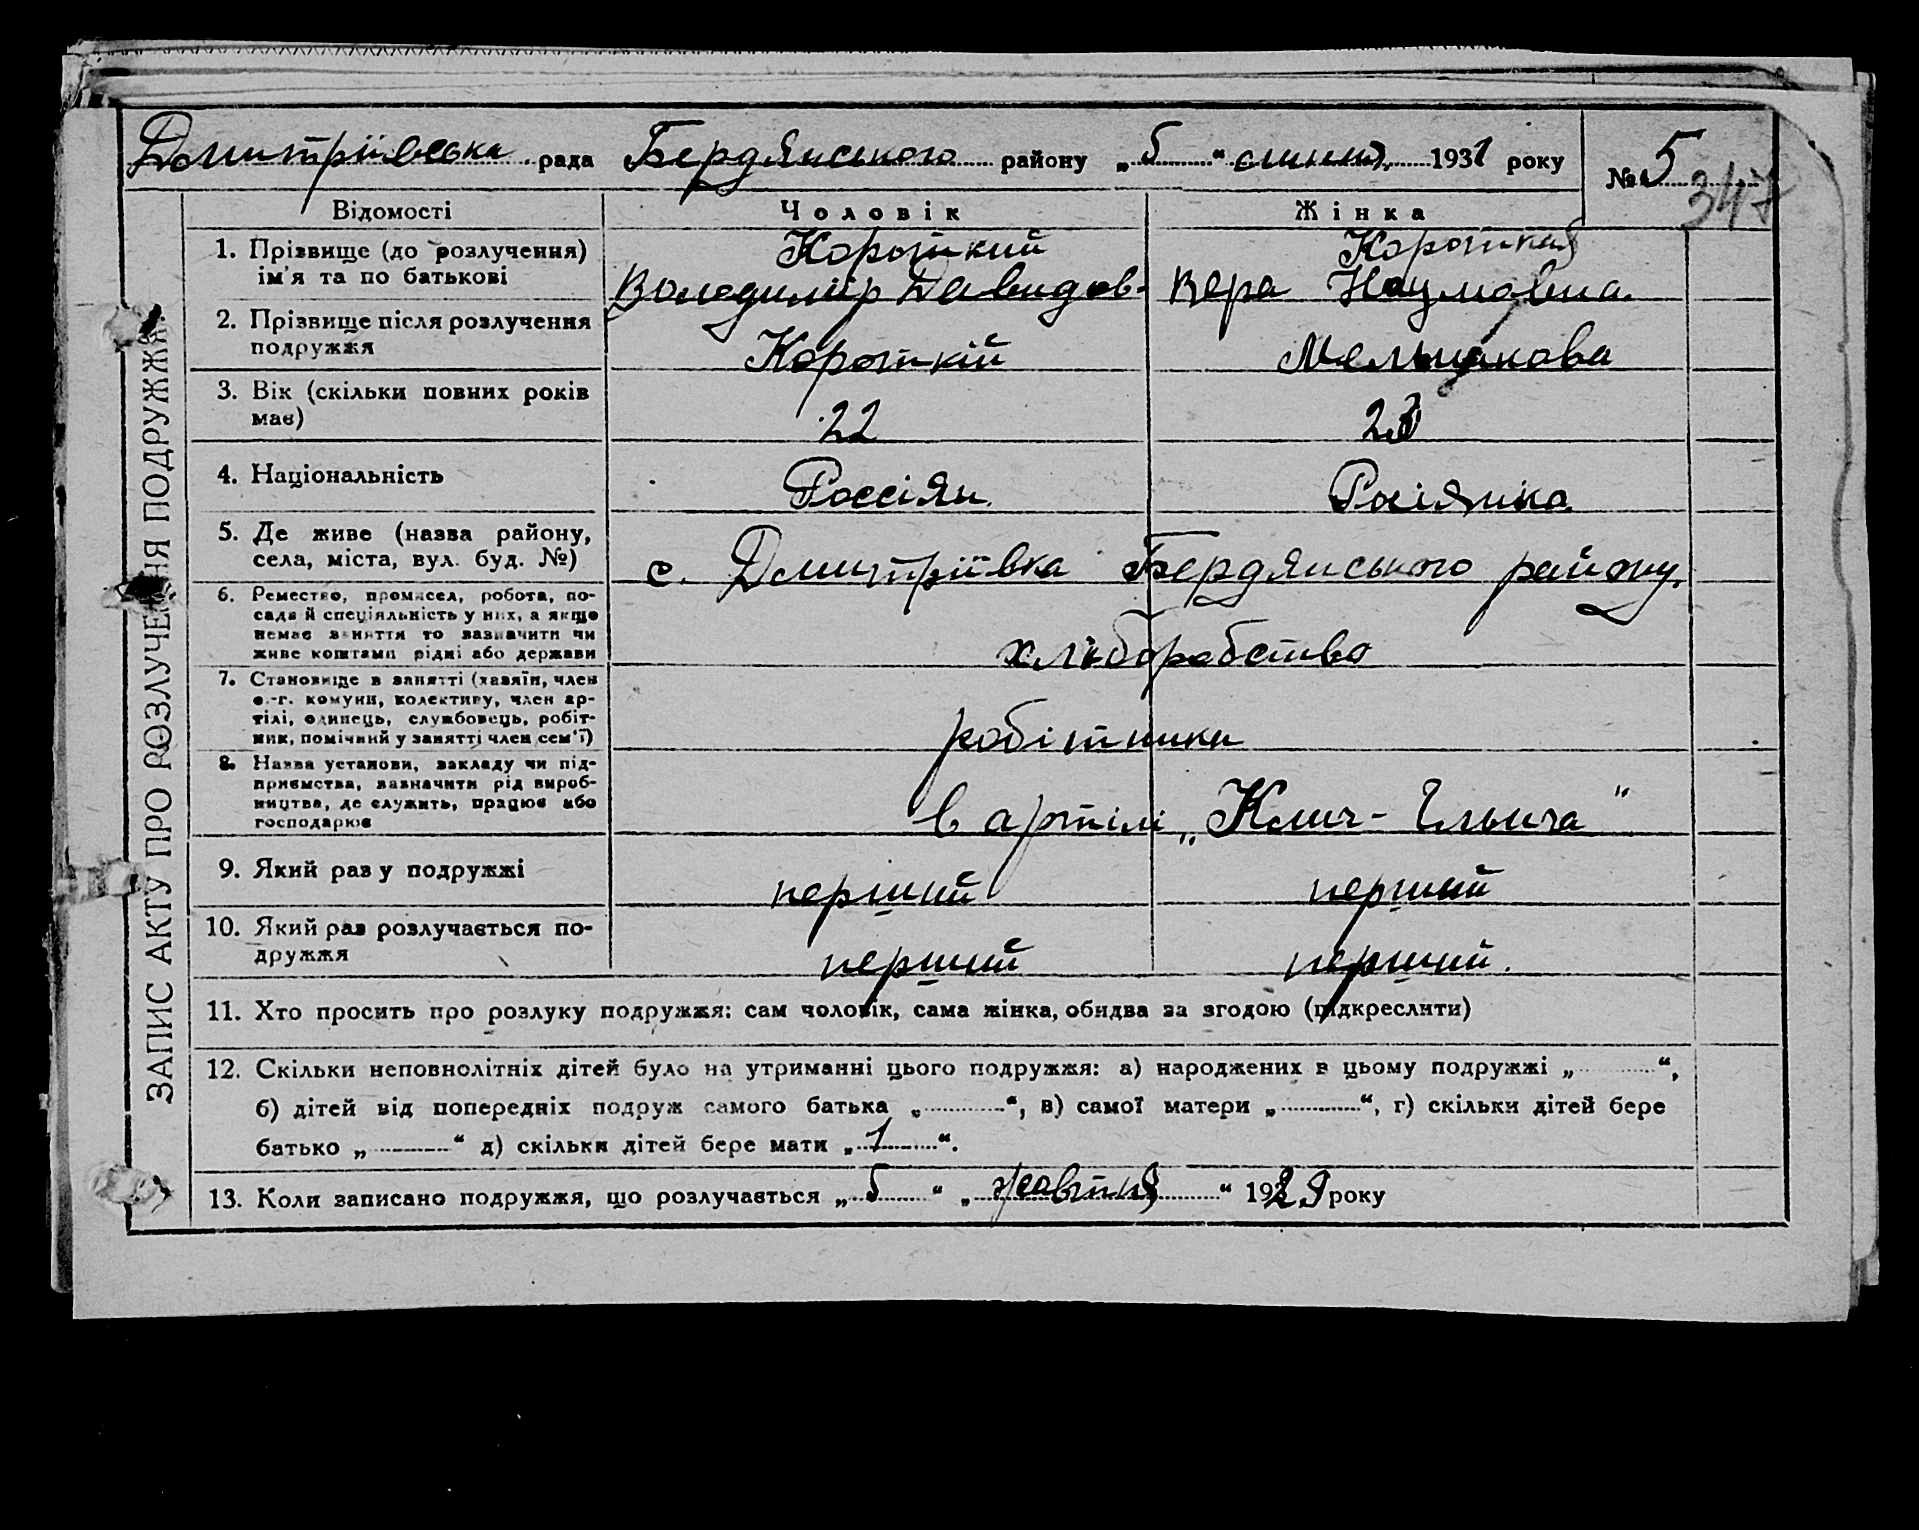 Дмитріївська рада Бердянського району „5“ 1931 року №5
347
Відомості Чоловік Жінка
1. Прізвище (до розлучення) ім'я та по батькові
Короткий Короткая
Володимір Давидов- Вера Наумовна.
2. Прізвище після розлучення подружжя
Короткій Мельникова
3. Вік (скільки повних років має)
22 23
4. Національність
Россіян. Росіянка
5. Де живе (назва району, села, міста, вул. буд. №)
с. Дмитріївка Бердянського району.
6. Ремество, промисел, робота, по-
сада й спеціяльність у них, а якщо
немає заняття то зазначити чи
живе коштами рідні або держави
хліборобство
7. Становище в занятті (хазяїн, член
с.-г. комуни, колективу, член ар-
тілі, одинець, службовець, робіт-
ник, помічний у занятті член сем'ї)
робітники
8. Назва установи, закладу чи під-
приємства, зазначити рід вироб-
ництва, де служить, працює або
господарює
в артілі „Клич-Ільича“
9. Який раз у подружжі
перший перший
10. Який раз розлучається по-
дружжя
перший перший.
11. Хто просить про розлуку подружжя: сам чоловік, сама жінка, обидва за згодою (підкреслити)
12. Скільки неповнолітніх дітей було на утриманні цього подружжя: а) народжених в цьому подружжі „ “,
б) дітей від попередніх подруж самого батька „ “, в) самої матери „ “, г) скільки дітей бере
батько „ “ д) скільки дітей бере мати „1“.
13. Коли записано подружжя, що розлучається „5“ „жовтня“ 1929 року
ЗАПИС АКТУ ПРО РОЗЛУЧЕННЯ ПОДРУЖЖЯ.